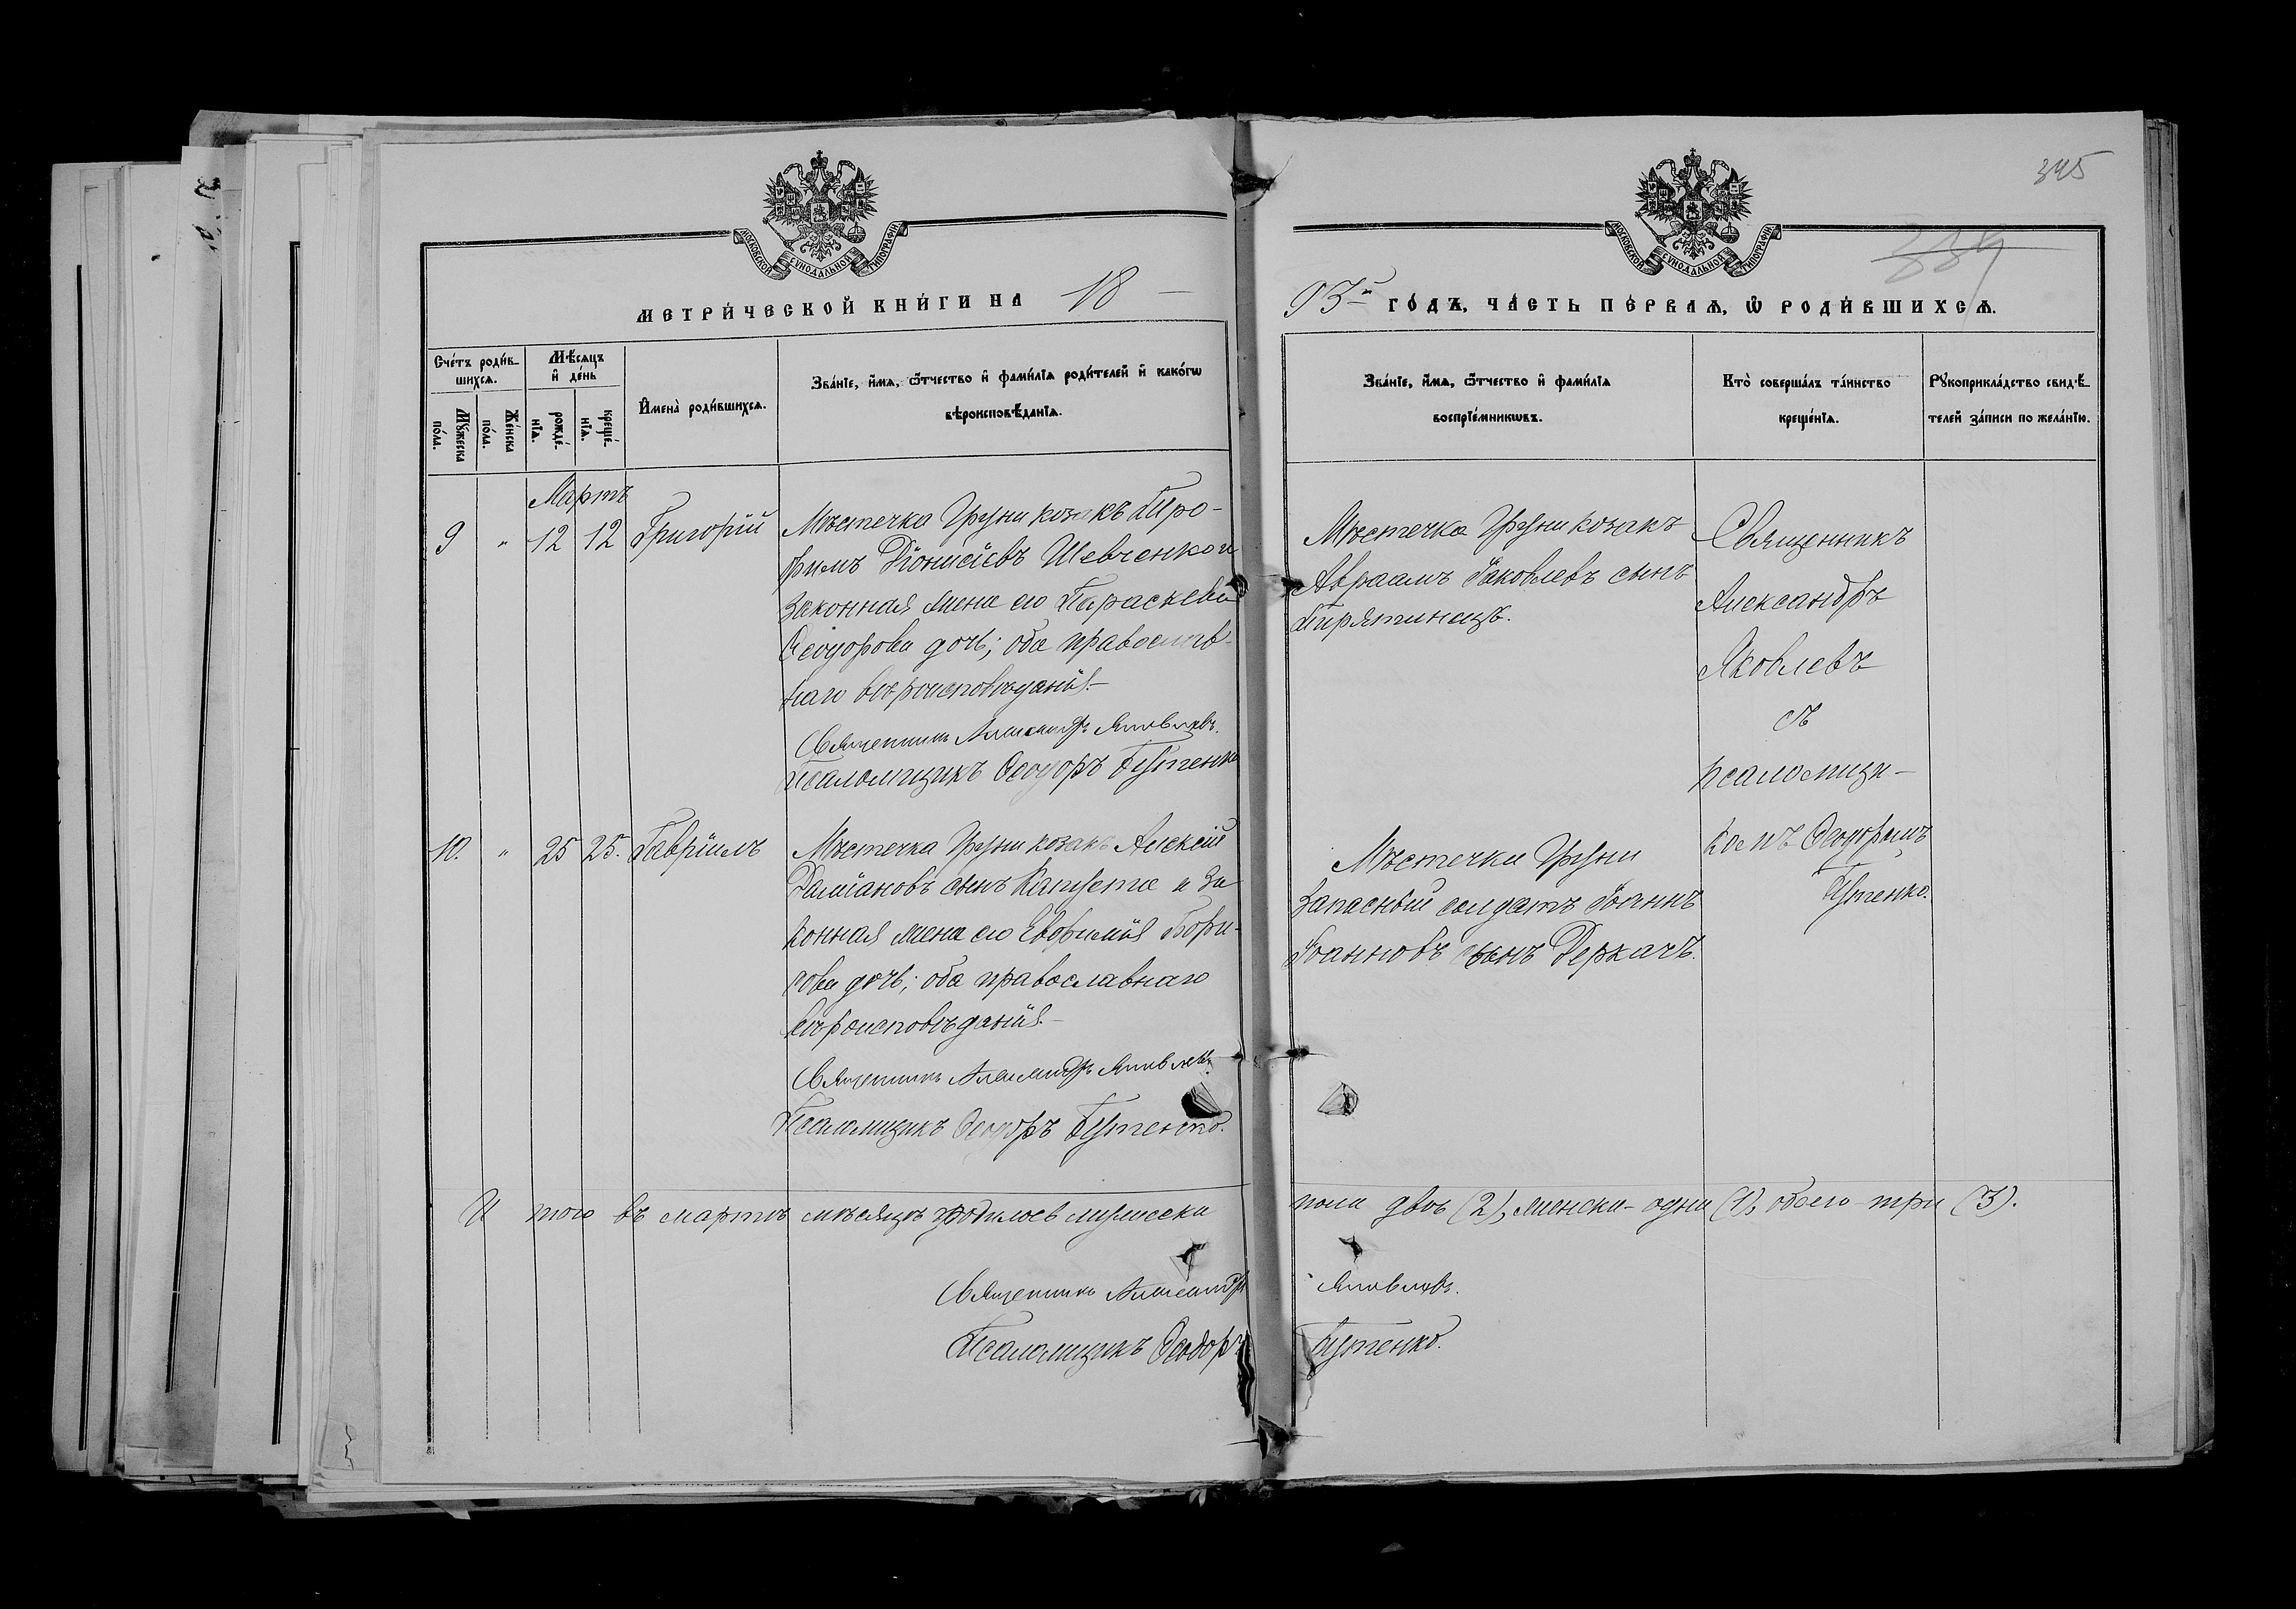 345
339
МОСКОВСКОЙ СУНОДАЛЬНОЙ ТИПОГРАФІИ
МОСКОВСКОЙ СУНОДАЛЬНОЙ ТИПОГРАФІИ
МЕТРИ́ЧЕСКОЙ КНИ́ГИ НА 18
93й ГО́ДЪ, ЧА́СТЬ ПЕ́РВАѦ, Ѡ РОДИ́ВШИХСѦ.
Сче́тъ роди́в-
шихсѧ.
Мꙋ́жеска
по́ла.
Же́нска
по́ла.
Мѣ́сѧцъ
и де́нь
рожде́-
нїѧ.
креще́-
нїѧ.
Имена̀ роди́вшихсѧ.
Зва́нїе, и́мѧ, ѻ́тчество и фами́лїѧ роди́телей и како́гѡ
вѣроисповѣ́данїѧ.
Зва́нїе, и́мѧ, ѻ́тчество и фами́лїѧ
воспрїе́мникѡвъ.
Кто̀ соверша́лъ та́инство
креще́нїѧ.
Рꙋкоприкла́дство свидѣ́-
телей за́писи по жела́нїю.
Мартъ
9 " 12 12 Григорій
Мѣстечка Груни козакъ Тро-
фимъ Діонисіевъ Шевченко и
законная жена его Параскева
Ѳеодорова дочь; оба православ-
наго вѣроисповѣданія.–
Священникъ Александръ Яковлевъ.
Псаломщикъ Ѳеодоръ Бутенко
Мѣстечка Груни козакъ
Авраамъ Іаковлевъ сынъ
Пирятинецъ.
Священникъ
Александръ
Яковлевъ
съ
псаломщи-
комъ Ѳеодоромъ
Бутенко.
10. " 25 25. Гавріилъ
Мѣстечка Груни козакъ Алексій
Даміановъ сынъ Капуста и за
конная жена его Евфимія Бори-
сова дочь; оба православнаго
вѣроисповѣданія.–
Священникъ Александръ Яковлевъ.
Псаломщикъ Ѳеодоръ Бутенко.
Мѣстечка Груни
запасный солдатъ Іоаннъ
Іоанновъ сынъ Деркачъ.
И того въ мартѣ мѣсяцѣ родилось мужеска пола двое (2), женска – одна (1), обоего – три (3).
Священникъ Александръ Яковлевъ.
Псаломщикъ Ѳеодоръ Бутенко.